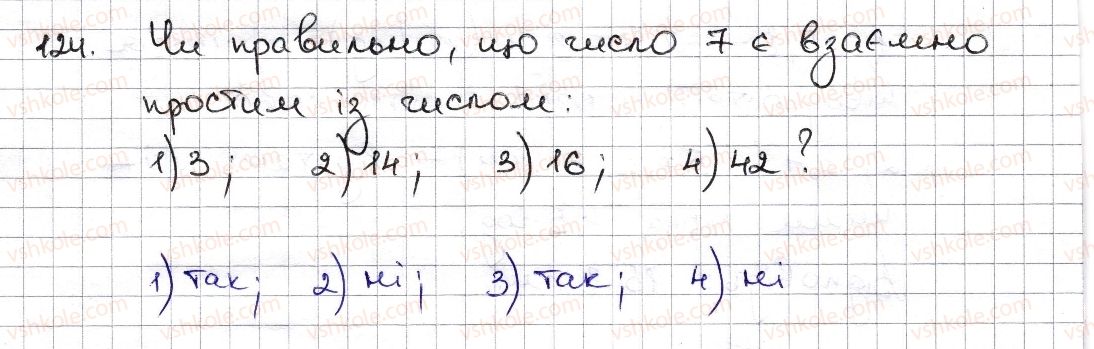 124. Чи правильно, що число 7 є взаємно
простим із числом:
1) 3; 2) 14; 3) 16; 4) 42?
1) так; 2) ні; 3) так; 4) ні